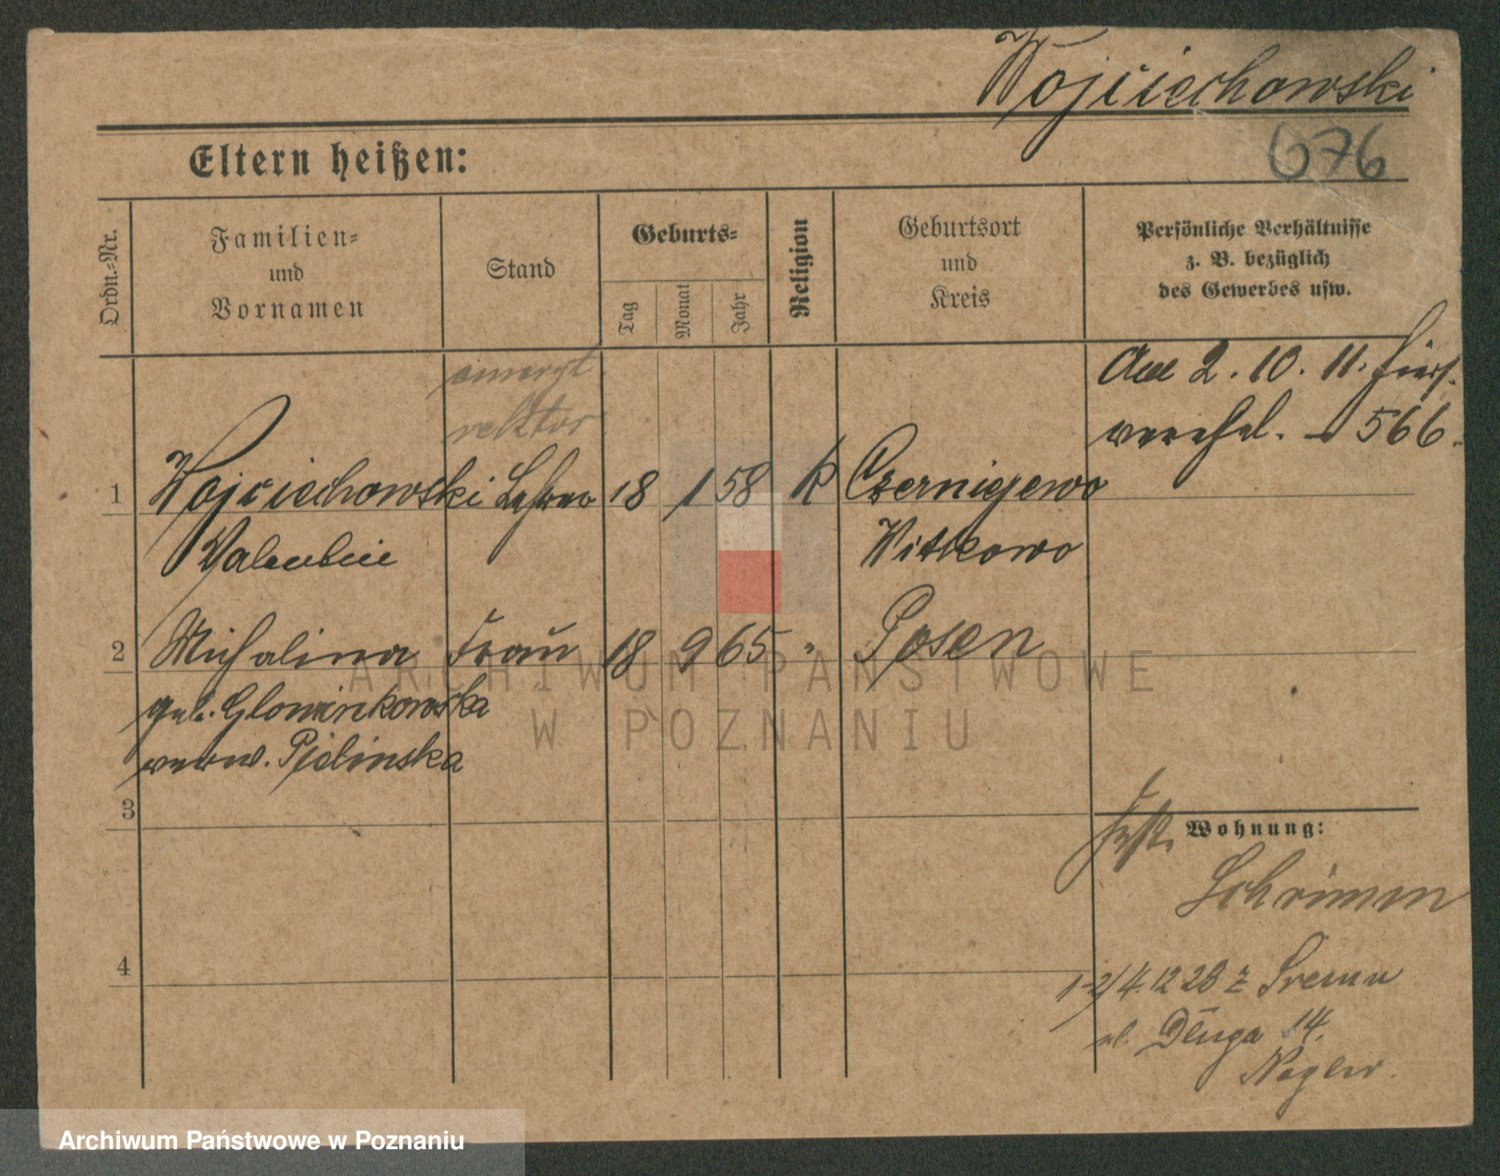 Wojciechowski
676
Eltern heißen:
Ordn.-Nr.
Familien-
und
Vornamen
Stand
Geburts-
Tag
Monat
Jahr
Religion
Geburtsort
und
Kreis
Persönliche Verhältnisse
z. B. bezüglich
des Gewerbes usw.
2. 10. 11.
566.
emeryt.
rektor
1 Wojciechowski Lehrer 18 1 58 k Czerniejewo
Valentin Witkowo
2 Michalina Frau 18 9 65 " Posen
geb. Glowinkowska
verw. Pielinska
3
Wohnung:
Schrimm
4
1-2/4.12 28 z Śremu
ul. Długa 14.
ARCHIWUM PAŃSTWOWE
W POZNANIU
Archiwum Państwowe w Poznaniu